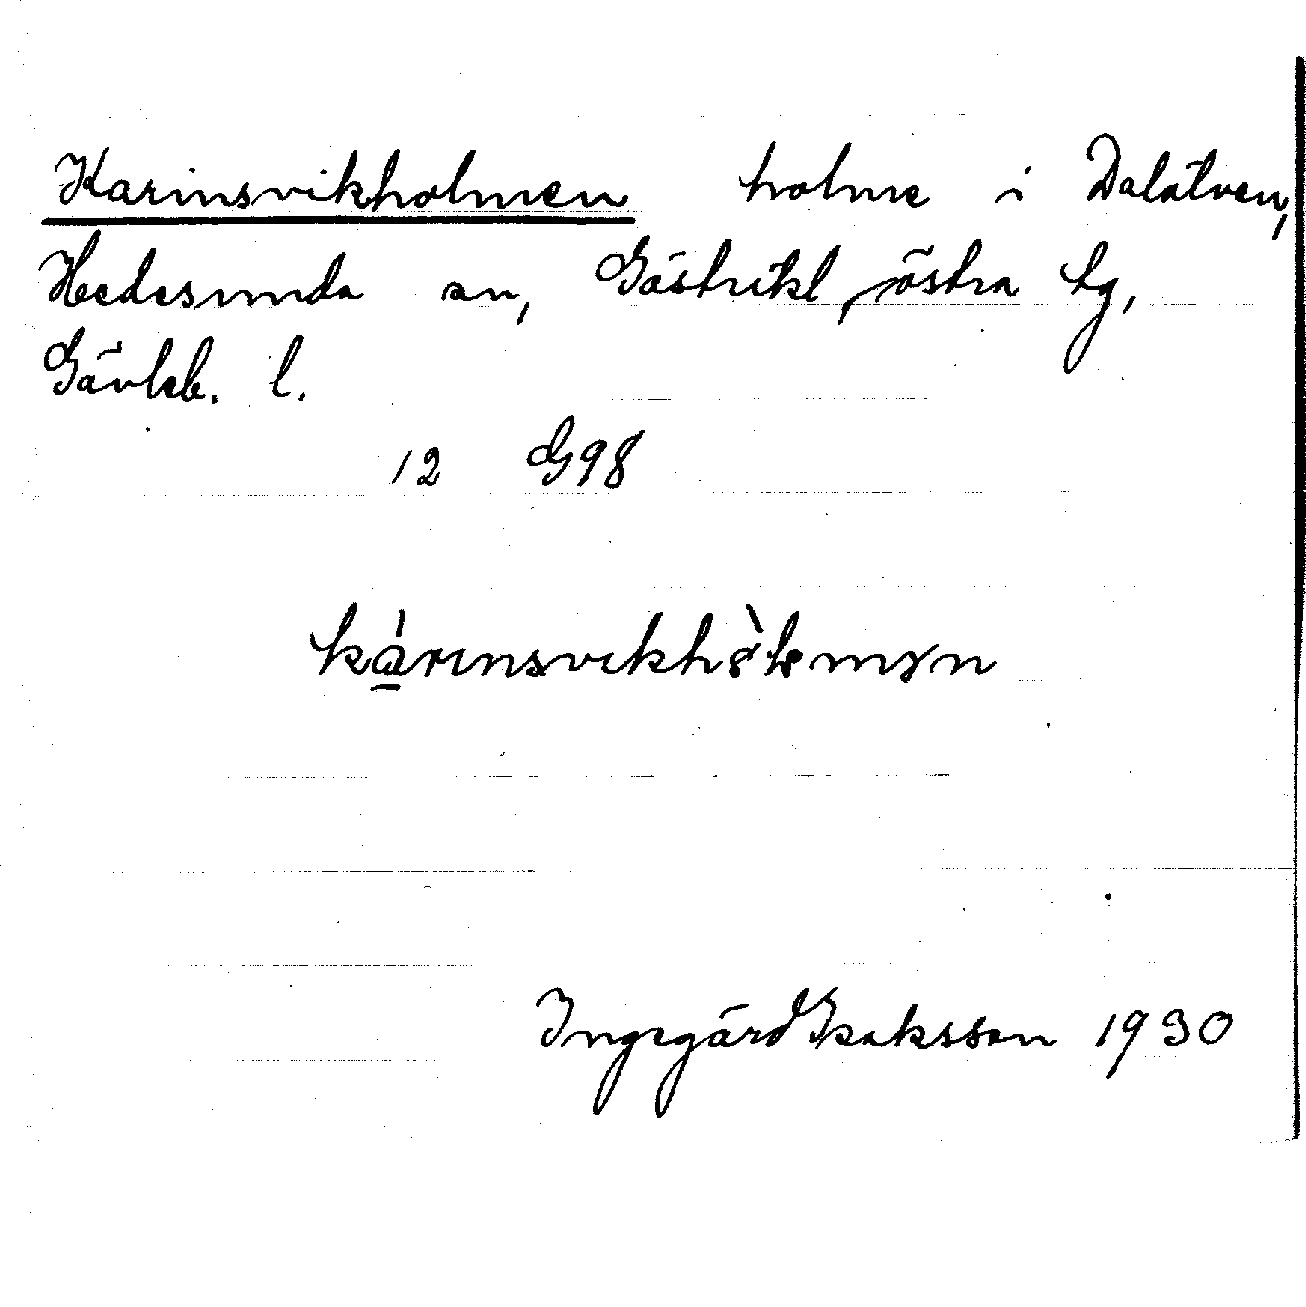 Karinsvikholmen holme i Dalälven,
Hedesunda sn, Gästrikl, östra tg,
Gävleb. l.
12 G98
Ingegärd Isaksson 1930